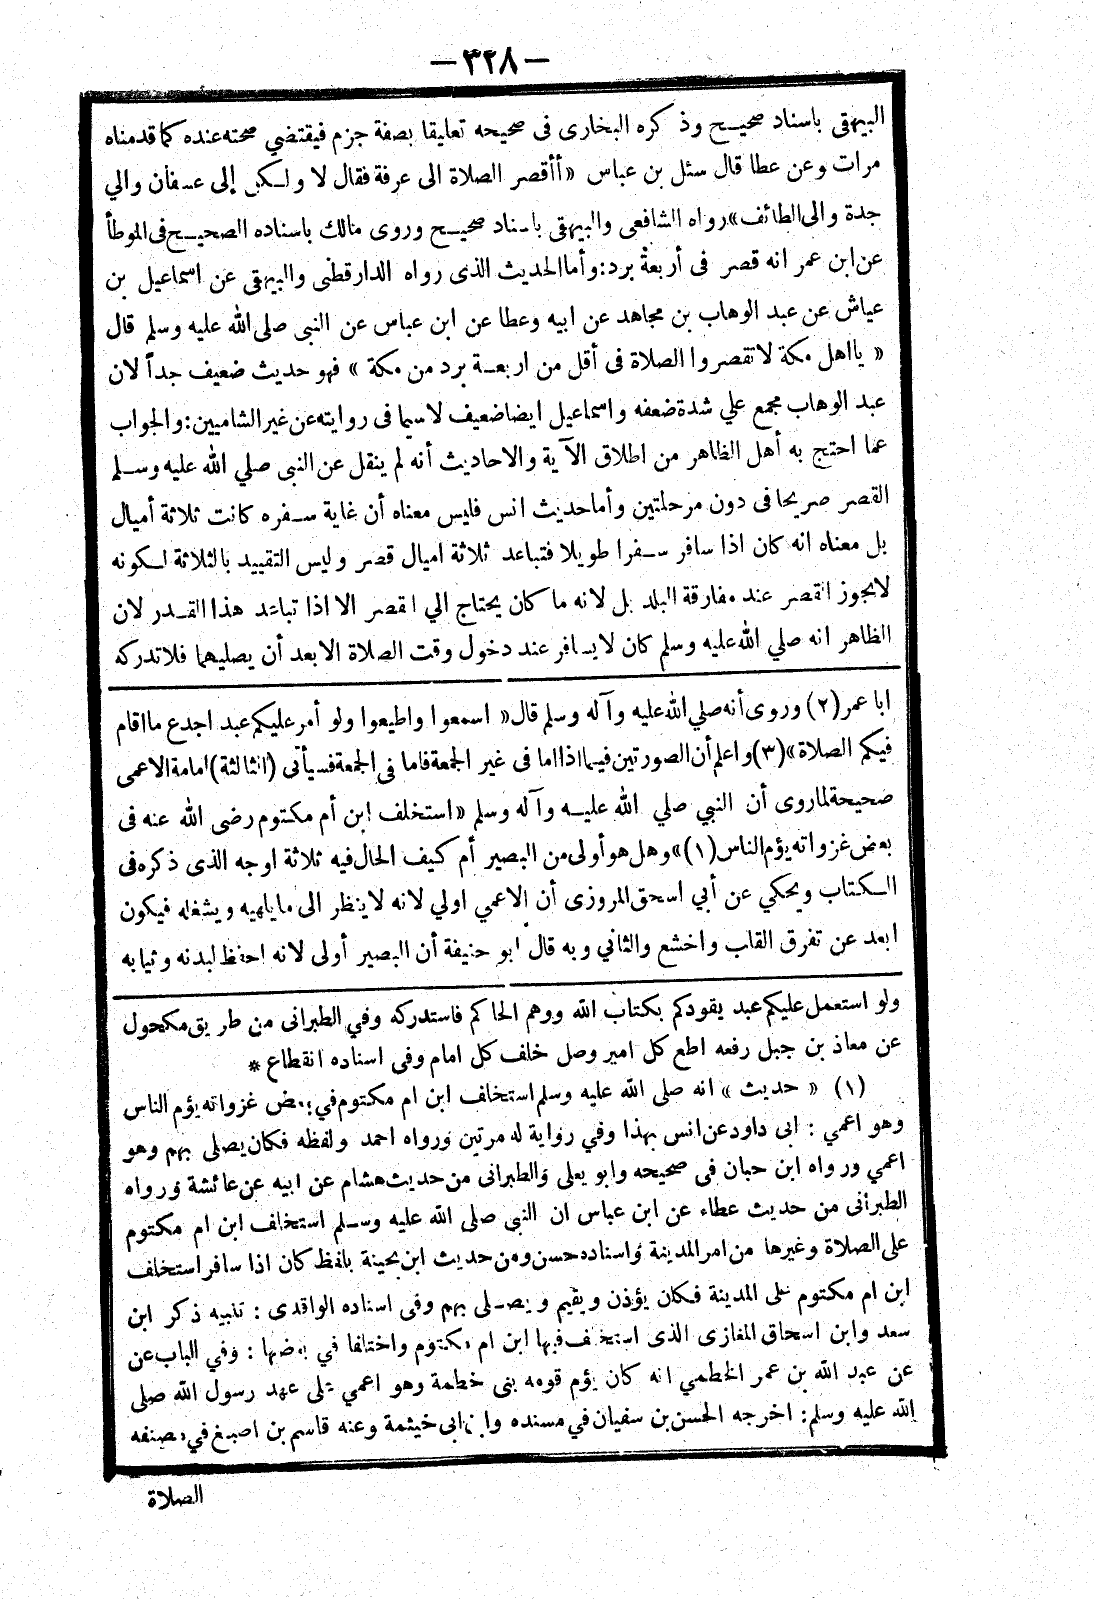 — ٣٢٨ —
البيهقى باسناد صحيح وذكره البخارى فى صحيحه تعليقا بصفة جزم فيقتضي صحته عنده كما قدمناه
مرات وعن عطا قال سئل بن عباس «أأقصر الصلاة الى عرفة فقال لا ولكن إلى عسفان والي
جدة والى الطائف» رواه الشافعى والبيهقى باسناد صحيح وروى مالك باسناده الصحيح فى الموطأ
عن ابن عمر انه قصر فى أربعة برد: وأما الحديث الذى رواه الدارقطنى والبيهقى عن اسماعيل بن
عياش عن عبد الوهاب بن مجاهد عن ابيه وعطا عن ابن عباس عن النبى صلى الله عليه وسلم قال
« يااهل مكة لاتقصروا الصلاة فى أقل من اربعة برد من مكة » فهو حديث ضعيف جداً لان
عبد الوهاب مجمع علي شدة ضعفه واسماعيل ايضا ضعيف لاسيما فى روايته عن غير الشاميين: والجواب
عما احتج به أهل الظاهر من اطلاق الآية والاحاديث أنه لم ينقل عن النبى صلي الله عليه وسلم
القصر صريحا فى دون مرحلتين وأما حديث انس فليس معناه أن غاية سفره كانت ثلاثة أميال
بل معناه انه كان اذا سافر سفرا طويلا فتباعد ثلاثة اميال قصر وليس التقييد بالثلاثة لكونه
لايجوز القصر عند مفارقة البلد بل لانه ما كان يحتاج الي القصر الا اذا تباعد هذا القدر لان
الظاهر انه صلي الله عليه وسلم كان لايسافر عند دخول وقت الصلاة الابعد أن يصليهما فلا تدركه
ابا عمر (٢) وروى أنه صلي الله عليه وآله وسلم قال «اسمعوا واطيعوا ولو أمر عليكم عبد اجدع ما اقام
فيكم الصلاة» (٣) واعلم أن الصورتين فيما اذا اما فى غير الجمعة فاما فى الجمعة فسيأتى (الثالثة) امامة الاعمى
صحيحة لما روى أن النبي صلي الله عليه وآله وسلم «استخلف ابن أم مكتوم رضى الله عنه فى
بعض غزواته يؤم الناس (١)» وهل هو أولى من البصير أم كيف الحال فيه ثلاثة اوجه الذى ذكره فى
الكتاب ويحكي عن أبي اسحق المروزى أن الاعمي اولي لانه لاينظر الى مايلهيه ويشغله فيكون
ابعد عن تفرق القلب واخشع والثاني وبه قال ابو حنيفة أن البصير أولى لانه احفظ لبدنه وثيابه
ولو استعمل عليكم عبد يقودكم بكتاب الله ووهم الحاكم فاستدركه وفي الطبرانى من طريق مكحول
عن معاذ بن جبل رفعه اطع كل امير وصل خلف كل امام وفى اسناده انقطاع *
(١) « حديث » انه صلى الله عليه وسلم استخلف ابن ام مكتوم في بعض غزواته يؤم الناس
وهو اعمي : ابى داود عن انس بهذا وفي رواية له مرتين ورواه احمد ولفظه فكان يصلى بهم وهو
اعمي ورواه ابن حبان فى صحيحه وابو يعلى والطبرانى من حديث هشام عن ابيه عن عائشة ورواه
الطبرانى من حديث عطاء عن ابن عباس ان النبى صلى الله عليه وسلم استخلف ابن ام مكتوم
على الصلاة وغيرها من امر المدينة واسناده حسن ومن حديث ابن بحينة بلفظ كان اذا سافر استخلف
ابن ام مكتوم على المدينة فكان يؤذن ويقيم ويصلى بهم وفى اسناده الواقدى : تنبيه ذكر ابن
سعد وابن اسحاق المغازى الذى استخلف فيها ابن ام مكتوم واختلفا في بعضها : وفي الباب عن
عن عبد الله بن عمر الخطمي انه كان يؤم قومه بنى خطمة وهو اعمي على عهد رسول الله صلى
الله عليه وسلم: اخرجه الحسن بن سفيان في مسنده وابن ابى خيثمة وعنه قاسم بن اصبغ في مصنفه
الصلاة